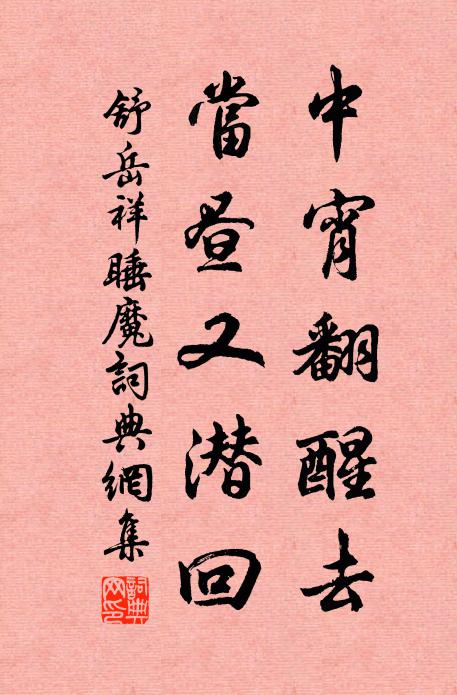 中宵翻醒去
當昼又潜回
舒岳祥睡魔詞典網集
詞典網印